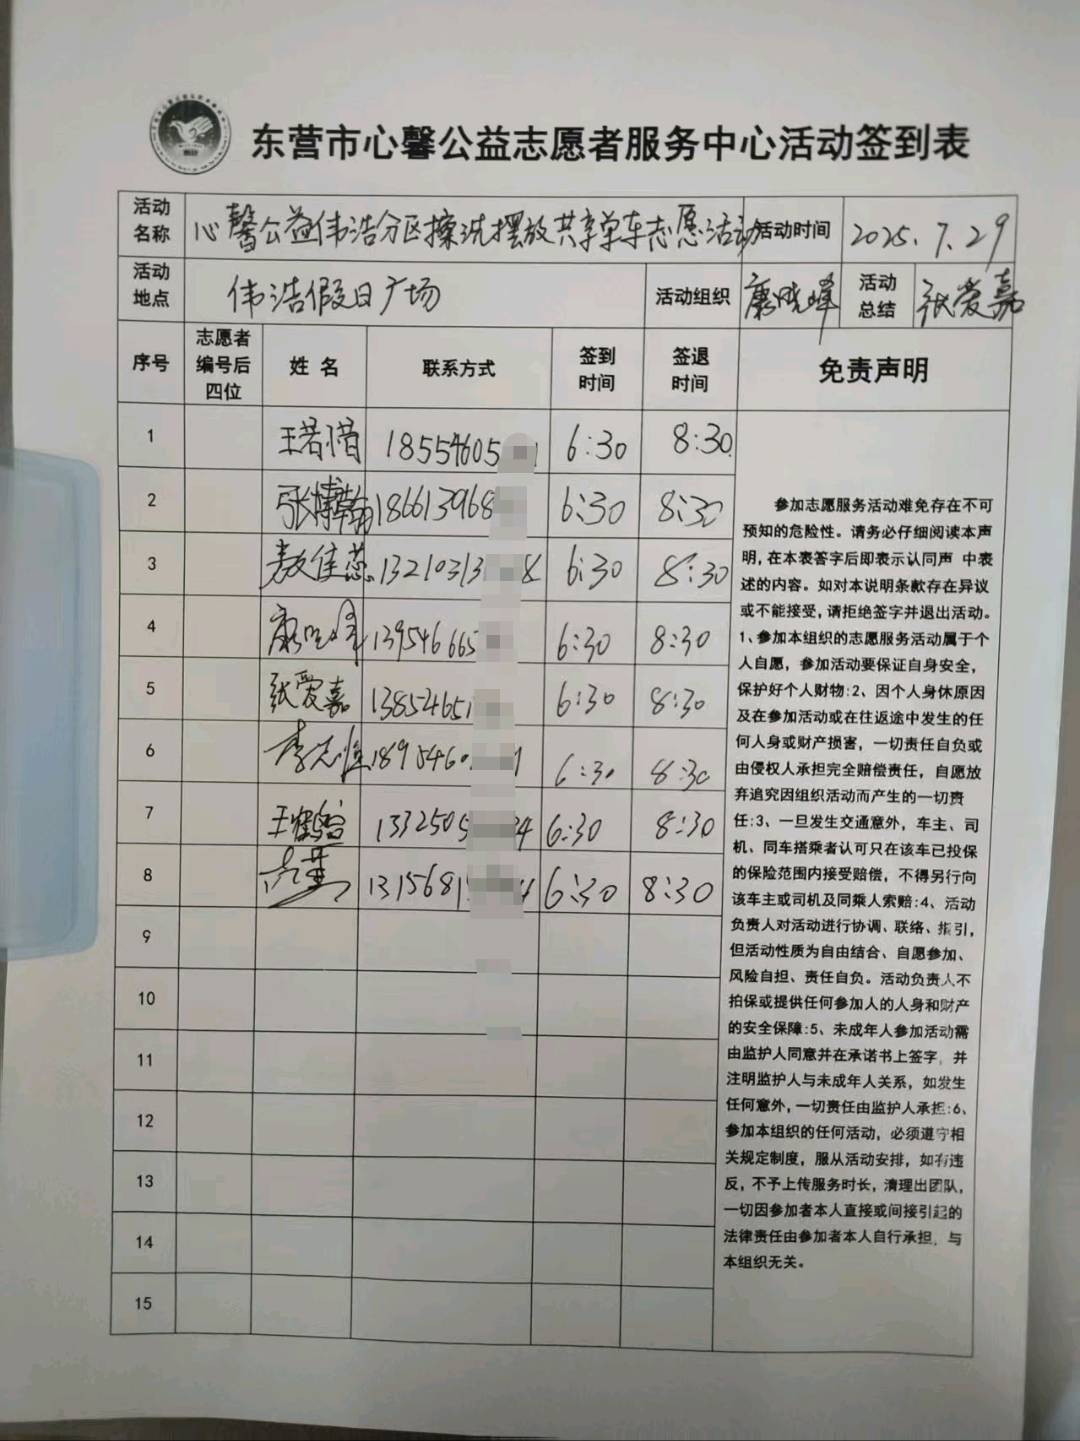 东营市心馨公益志愿者服务中心活动签到表
活动名称 心馨公益伟浩分区擦洗摆放共享单车志愿活动 活动时间 2025.7.29
活动地点 伟浩假日广场 活动组织 康晓峰 活动总结 张爱嘉
序号 志愿者编号后四位 姓名 联系方式 签到时间 签退时间 免责声明
1 王若惜 18554605 1 6:30 8:30
2 张博翰 186613968 6:30 8:30
3 敖佳蕊 13210313 8 6:30 8:30
4 康晓峰 139546665 6:30 8:30
5 张爱嘉 13854651 6:30 8:30
6 李志恒 1895460 1 6:30 8:30
7 王鹤 1332505 34 6:30 8:30
8 1315681 4 6:30 8:30
9
10
11
12
13
14
15
参加志愿服务活动难免存在不可
预知的危险性。请务必仔细阅读本声
明,在本表答字后即表示认同声 中表
述的内容。如对本说明条款存在异议
或不能接受,请拒绝签字并退出活动。
1、参加本组织的志愿服务活动属于个
人自愿，参加活动要保证自身安全，
保护好个人财物:2、因个人身休原因
及在参加活动或在往返途中发生的任
何人身或财产损害，一切责任自负或
由侵权人承担完全赔偿责任，自愿放
弃追究因组织活动而产生的一切责
任:3、一旦发生交通意外，车主、司
机、同车搭乘者认可只在该车已投保
的保险范围内接受赔偿，不得另行向
该车主或司机及同乘人索赔:4、活动
负责人对活动进行协调、联络、指引，
但活动性质为自由结合、自愿参加、
风险自担、责任自负。活动负责人不
拍保或提供任何参加人的人身和财产
的安全保障:5、未成年人参加活动需
由监护人同意并在承诺书上签字，并
注明监护人与未成年人关系，如发生
任何意外,一切责任由监护人承担:6、
参加本组织的任何活动，必须遵守相
关规定制度，服从活动安排，如有违
反，不予上传服务时长，清理出团队，
一切因参加者本人直接或间接引起的
法律责任由参加者本人自行承担，与
本组织无关。